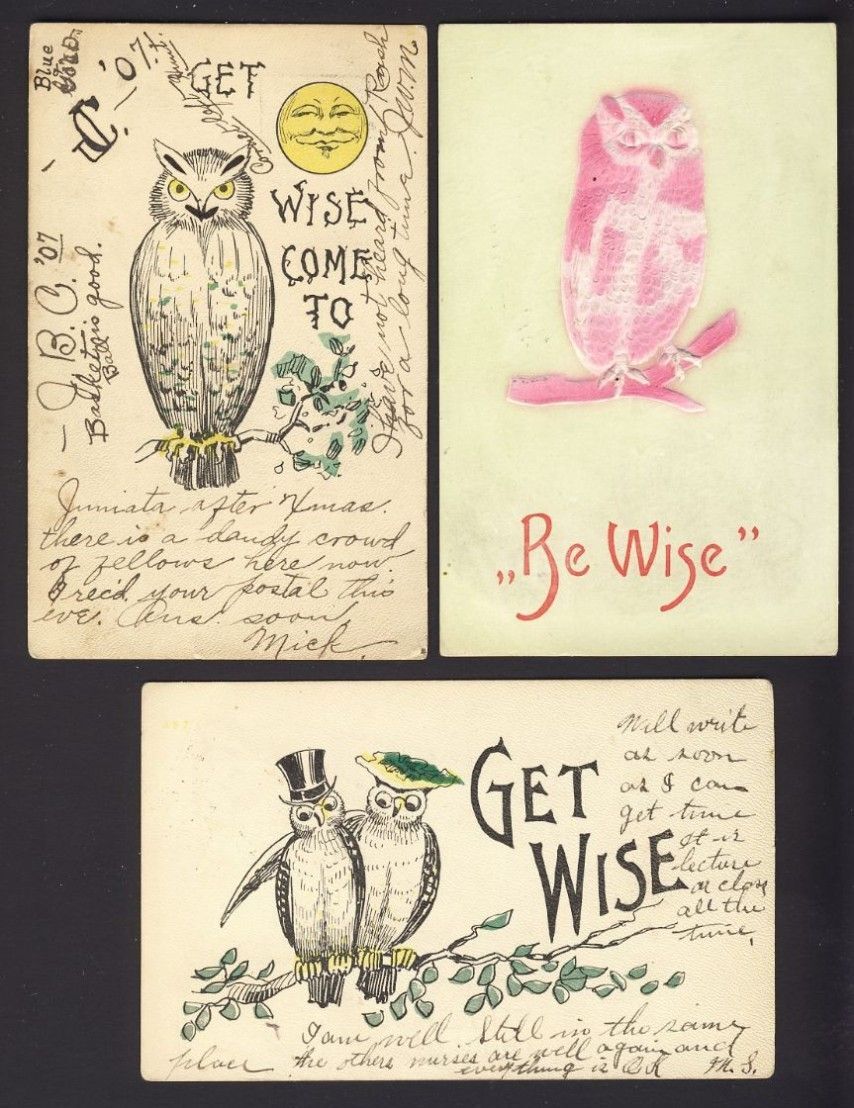 Blue
C. '07
GET
WISE
COME
TO
I have not heard from Roach
for a long time. J.W.M.
— J. B. C. '07
Basket is good.
Ball
Juniata after Xmas.
there is a dandy crowd
of fellows here now.
I rec'd your postal this
eve. Ans. soon,
Mick.
„Be Wise”
GET
WISE
Will write
as soon
as I can
get time
It is
lecture
or class
all the
time.
I am well. Still in the same
place the others nurses are well again and
everything is OK M. S.